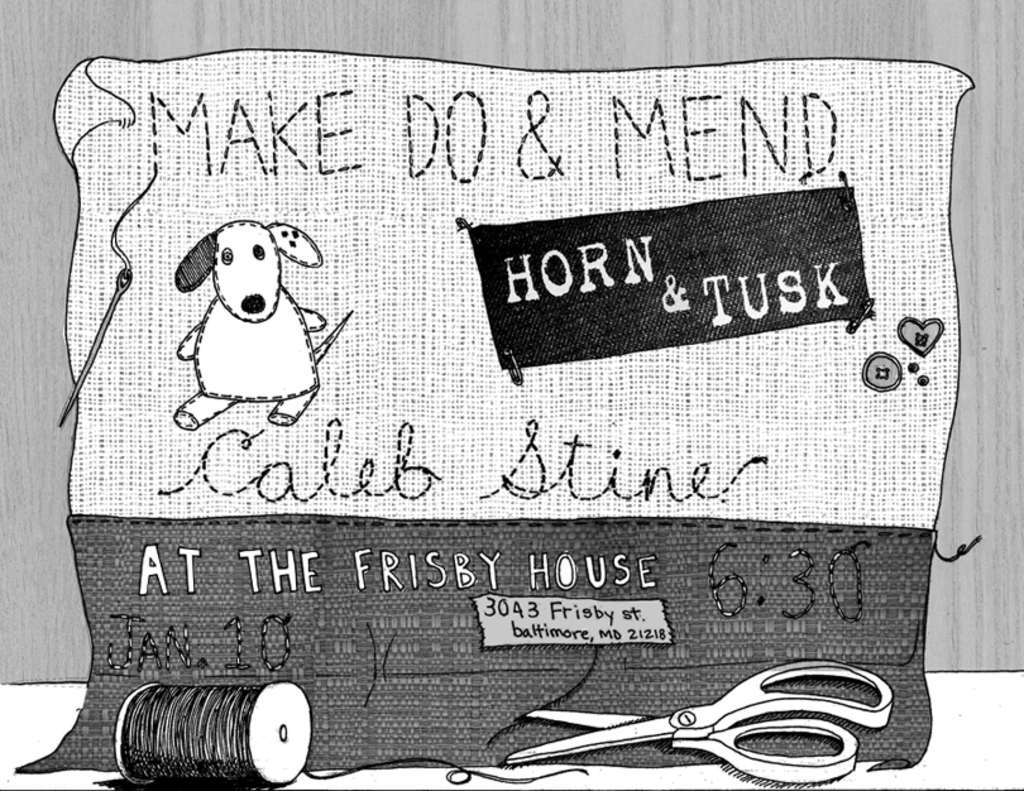 MAKE DO & MEND
HORN & TUSK
Caleb Stine
AT THE FRISBY HOUSE
6:30
3043 Frisby st.
baltimore, MD 21218
JAN. 10